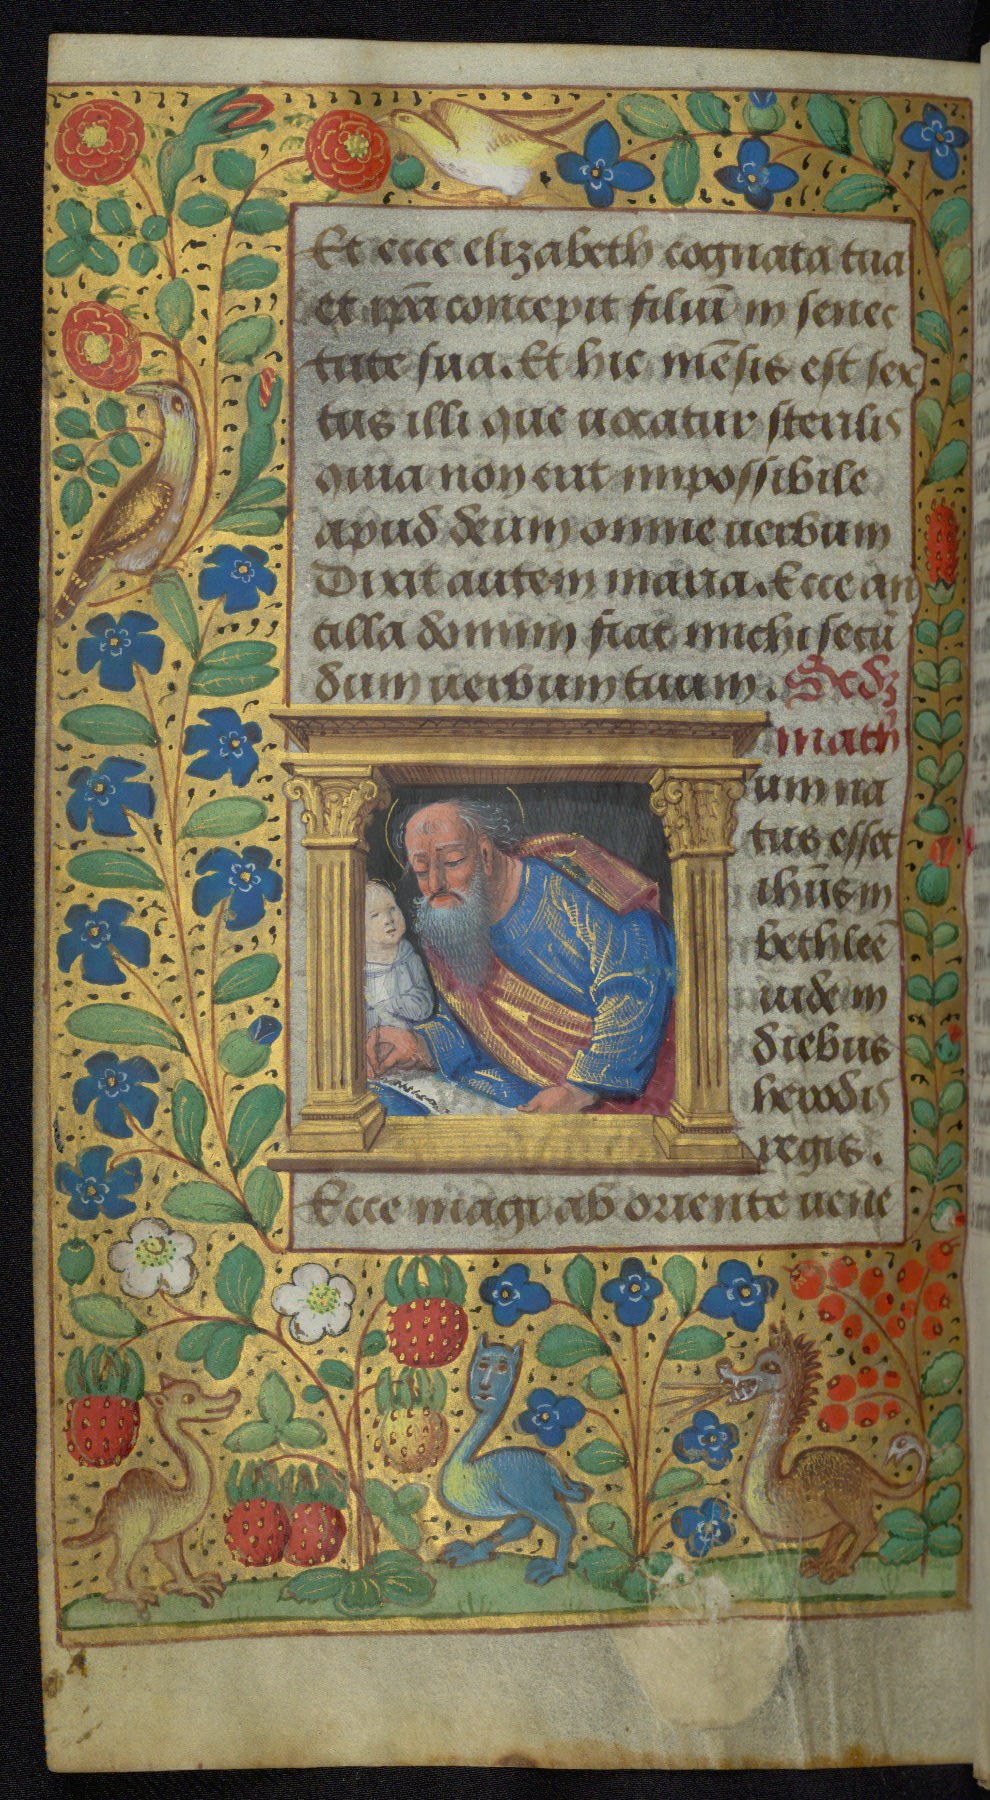 Et ecce elizabeth cognata tua
et ip̄a concepit filiū in senec
tute sua. Et hic mēsis est sex
tus illi que uocatur sterilis
quia non erit impossibile
apud deum omne uerbum
Dixit autem maria. Ecce an
cilla domini fiat michi secū
dum uerbum tuum. Scdȝ
math
um na
tus esset
ihūs in
bethleē
iude in
diebus
herodis
regis.
Ecce magi ab oriente uene